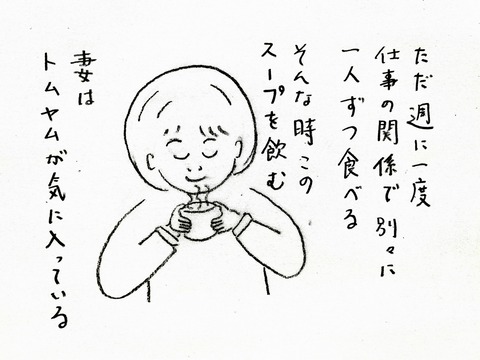 ただ週に一度
仕事の関係で別々に
一人ずつ食べる
そんな時この
スープを飲む
妻は
トムヤムが気に入っている